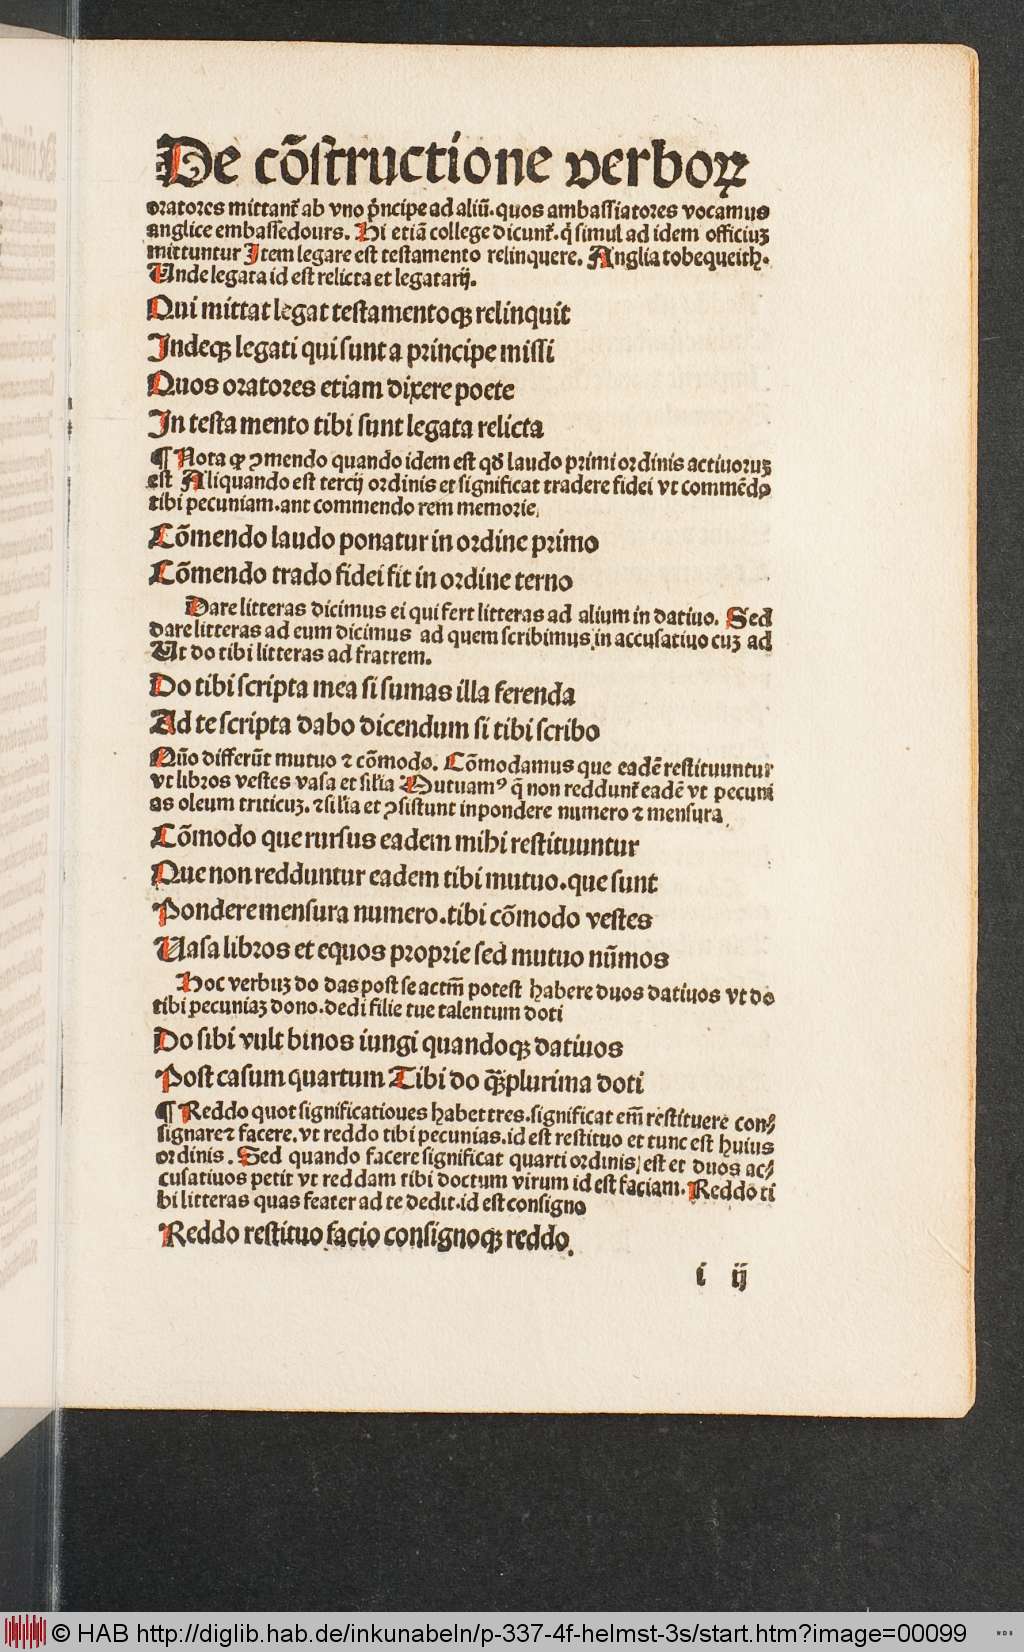 De cōſtructione verboꝝ
oratores mittant᷑ ab vno p̄ncipe ad aliū. quos ambaſſiatores vocamus
anglice embaſſedours. Hi etiā college dicunt᷑. q̄ ſimul ad idem officiuꝫ
mittuntur Item legare eſt teſtamento relinquere. Anglia tobequeith.
Unde legata id eſt relicta et legatarij.
Qui mittat legat teſtamentoqꝫ relinquit
Indeqꝫ legati qui ſunt a principe miſſi
Quos oratores etiam dixere poete
In teſtamento tibi ſunt legata relicta
¶ Nota ꝙ ꝯmendo quando idem eſt qd̄ laudo primi ordinis actiuoruꝫ
eſt Aliquando eſt tercij ordinis et ſignificat tradere fidei vt commēdo
tibi pecuniam. ant commendo rem memorie.
Cōmendo laudo ponatur in ordine primo
Cōmendo trado fidei fit in ordine terno
Dare litteras dicimus ei qui fert litteras ad alium in datiuo. Sed
dare litteras ad eum dicimus ad quem ſcribimus in accuſatiuo cuꝫ ad
Ut do tibi litteras ad fratrem.
Do tibi ſcripta mea ſi ſumas illa ferenda
Ad te ſcripta dabo dicendum ſi tibi ſcribo
Quō differūt mutuo ⁊ cōmodo. Cōmodamus que eadē reſtituuntur
vt libros veſtes vaſa et ſilia Mutuamꝰ q̄ non reddunt᷑ eadē vt pecuni
as oleum triticuꝫ. ⁊ ſilia et ꝯſiſtunt inpondere numero ⁊ menſura
Cōmodo que rurſus eadem mihi reſtituuntur
Que non redduntur eadem tibi mutuo. que ſunt
Pondere menſura numero. tibi cōmodo veſtes
Uaſa libros et equos proprie ſed mutuo nūmos
Hoc verbuꝫ do das poſt ſe actm̄ poteſt habere duos datiuos vt do
tibi pecuniaꝫ dono. dedi filie tue talentum doti
Do ſibi vult binos iungi quandoqꝫ datiuos
Poſt caſum quartum Tibi do qꝫ̄plurima doti
¶ Reddo quot ſignificatioues habet tres. ſignificat em̄ reſtituere con⸗
ſignare⁊ facere. vt reddo tibi pecunias. id eſt reſtituo et tunc eſt huius
ordinis. Sed quando facere ſignificat quarti ordinis eſt et duos ac⸗
cuſatiuos petit vt reddam tibi doctum virum id eſt faciam. Reddo ti
bi litteras quas feater ad te dedit. id eſt conſigno
Reddo reſtituo facio conſignoqꝫ reddo.
i ij
© HAB http://diglib.hab.de/inkunabeln/p-337-4f-helmst-3s/start.htm?image=00099